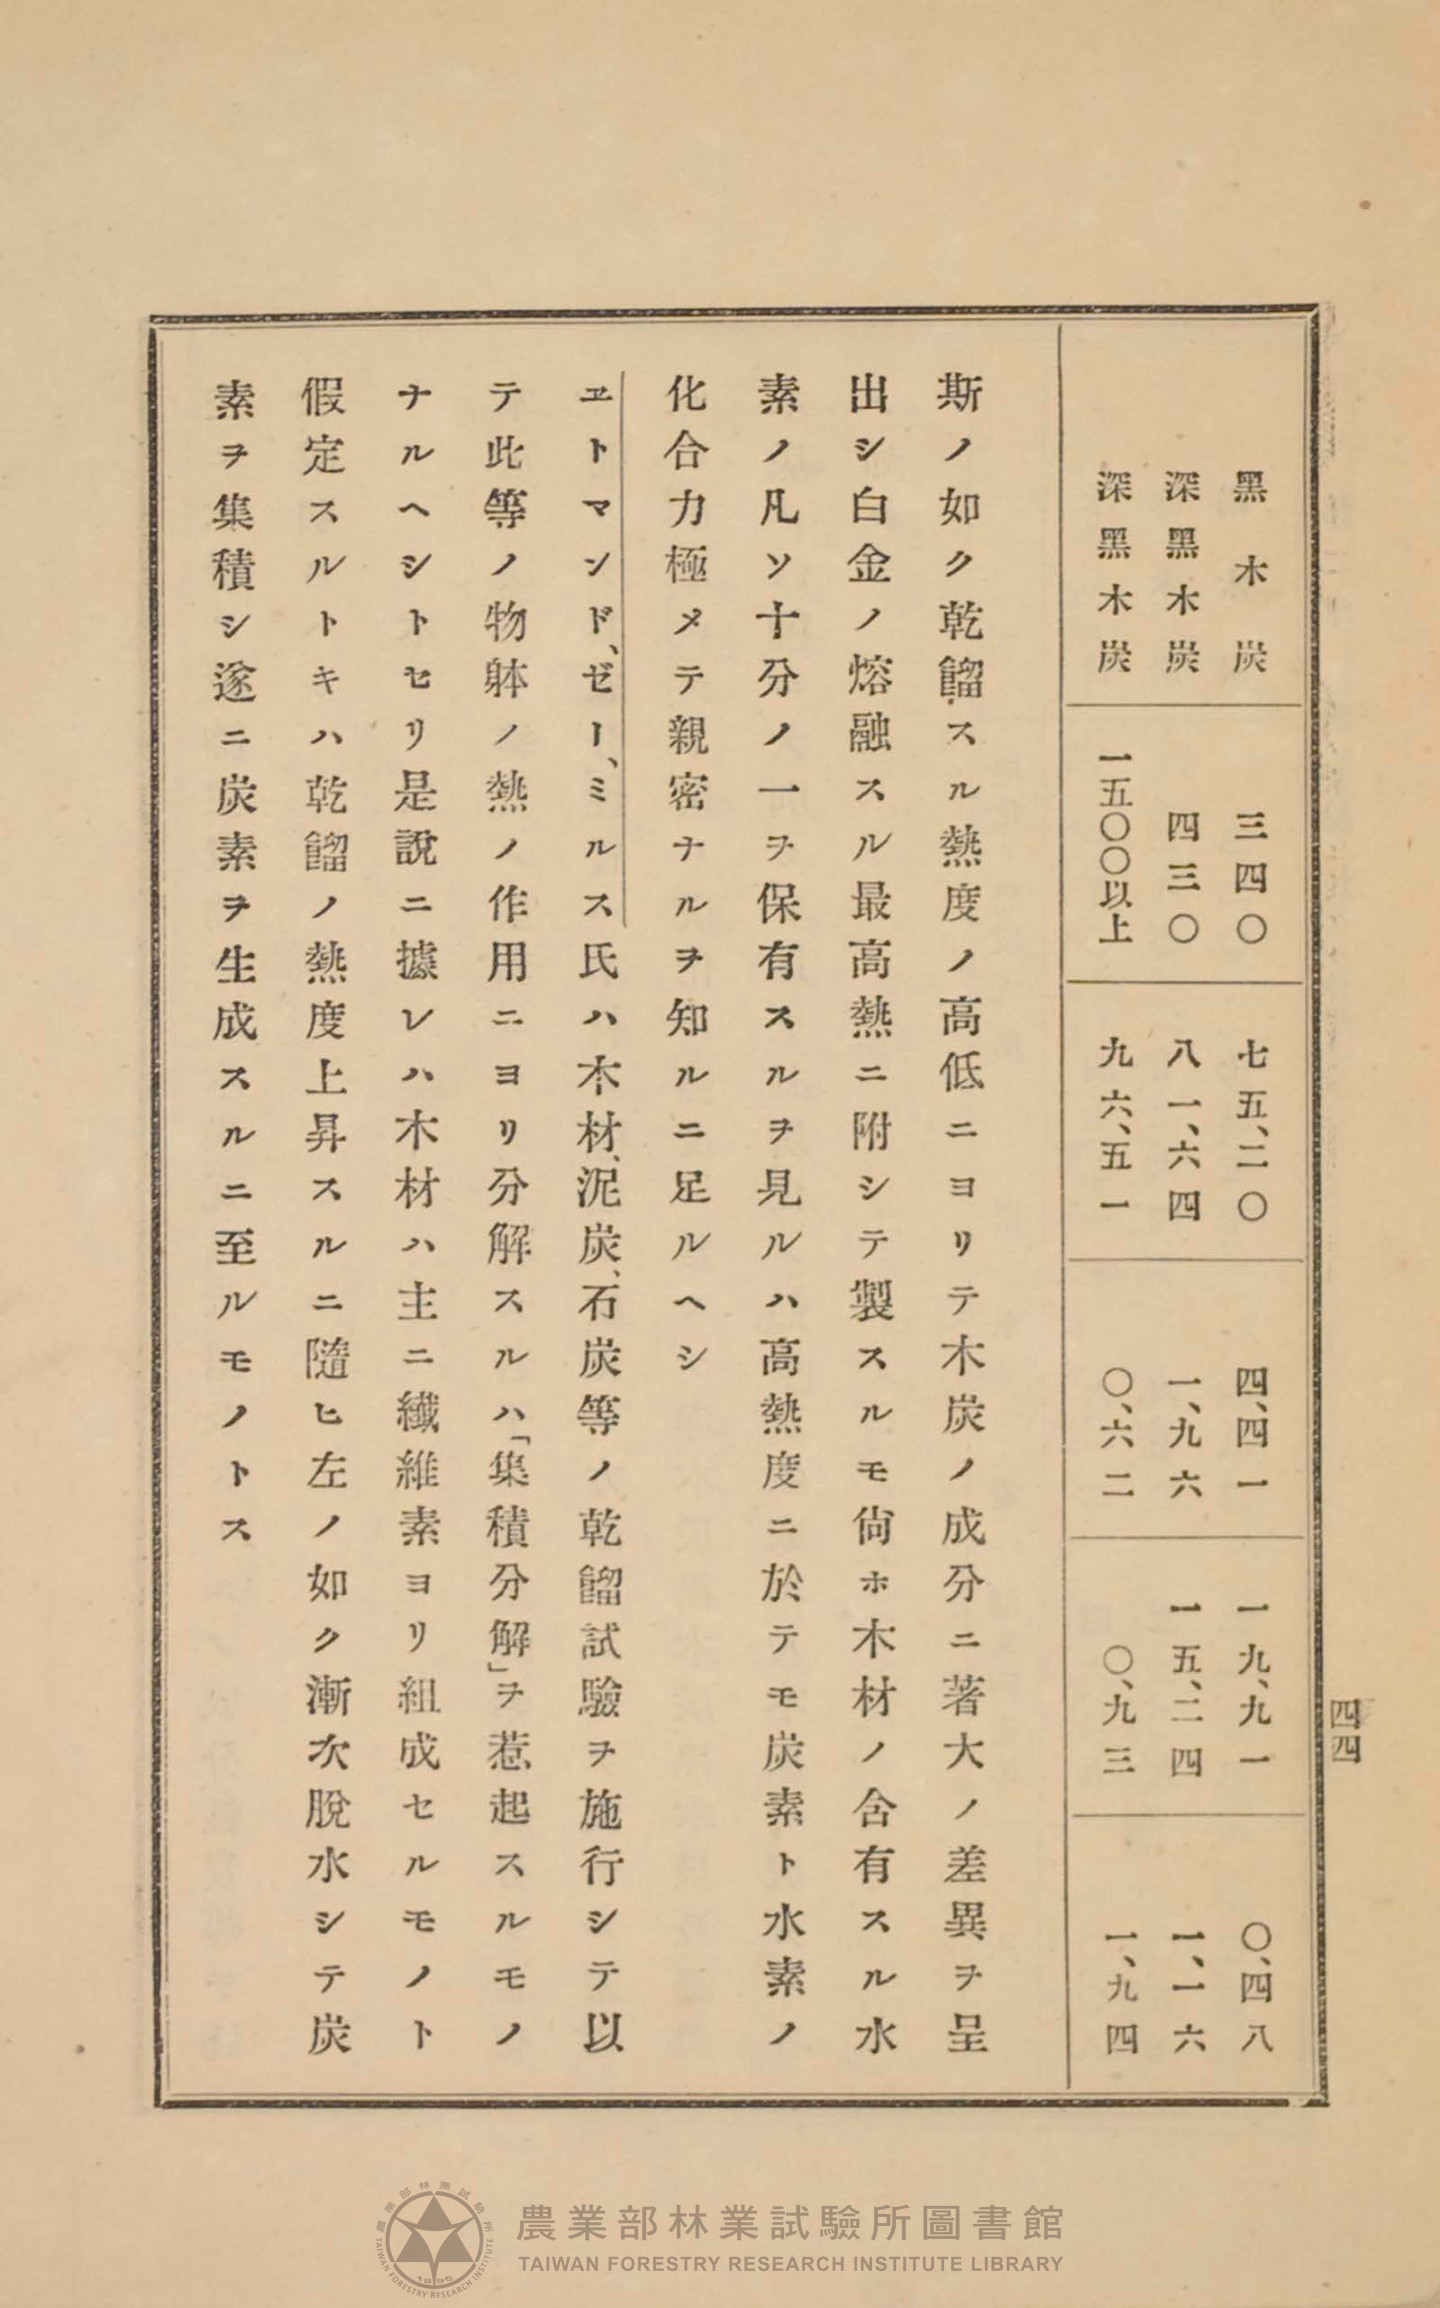 四四
黑木炭 三四〇 七五、二〇 四、四一 一九、九一 〇、四八
深黑木炭 四三〇 八一、六四 一、九六 一五、二四 一、一六
深黑木炭 一五〇〇以上 九六、五一 〇、六二 〇、九三 一、九四
斯ノ如ク乾餾スル熱度ノ高低ニヨリテ木炭ノ成分ニ著大ノ差異ヲ呈
出シ白金ノ熔融スル最高熱ニ附シテ製スルモ尙ホ木材ノ含有スル水
素ノ凡ソ十分ノ一ヲ保有スルヲ見ルハ高熱度ニ於テモ炭素ト水素ノ
化合力極メテ親密ナルヲ知ルニ足ルヘシ
ヱトマンド、ゼー、ミルス氏ハ木材、泥炭、石炭等ノ乾餾試驗ヲ施行シテ以
テ此等ノ物躰ノ熱ノ作用ニヨリ分解スルハ「集積分解」ヲ惹起スルモノ
ナルヘシトセリ是說ニ據レハ木材ハ主ニ纖維素ヨリ組成セルモノト
假定スルトキハ乾餾ノ熱度上昇スルニ隨ヒ左ノ如ク漸次脫水シテ炭
素ヲ集積シ遂ニ炭素ヲ生成スルニ至ルモノトス
農業部林業試驗所圖書館
TAIWAN FORESTRY RESEARCH INSTITUTE LIBRARY
農業部林業試驗所
TAIWAN FORESTRY RESEARCH INSTITUTE
1896